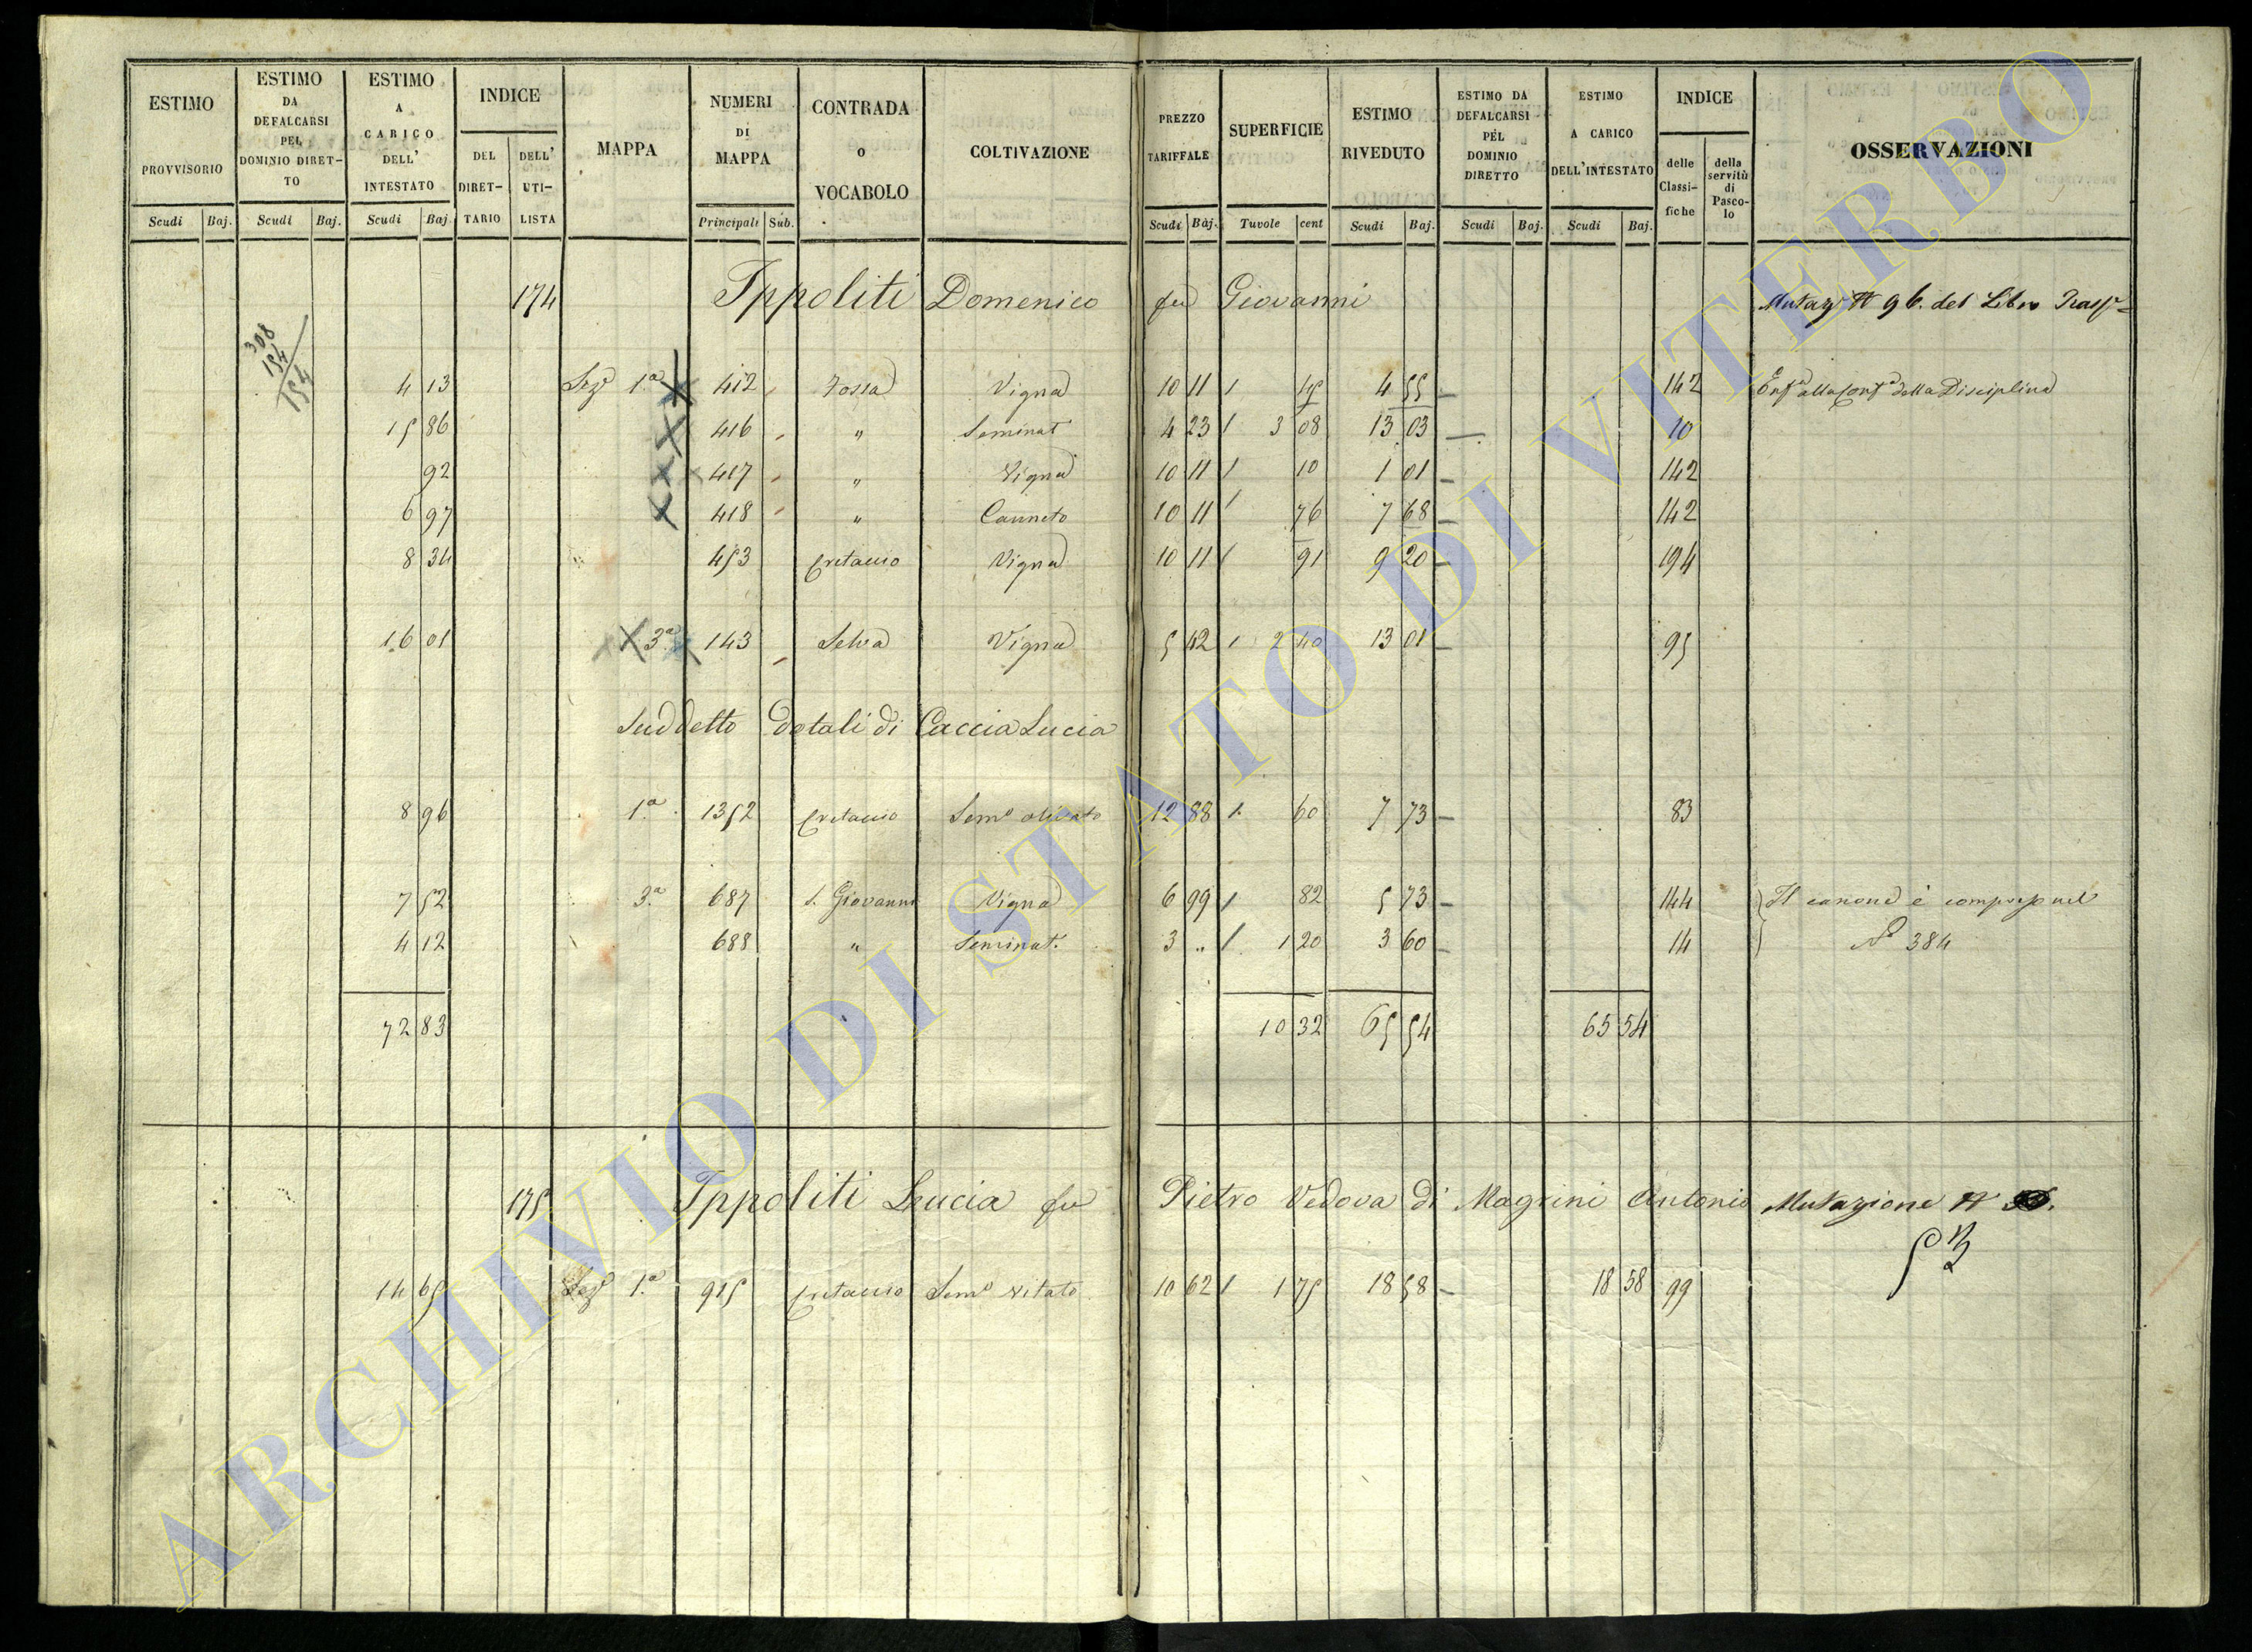 ESTIMO PROVVISORIO Scudi Baj.
ESTIMO DA DEFALCARSI PEL DOMINIO DIRET- TO Scudi Baj.
ESTIMO A CARICO DELL' INTESTATO Scudi Baj.
INDICE DEL DIRET- TARIO DELL' UTI- LISTA
MAPPA
NUMERI DI MAPPA Principali Sub.
CONTRADA O VOCABOLO
COLTIVAZIONE
PREZZO TARIFFALE Scudi Baj.
SUPERFICIE Tavole cent
ESTIMO RIVEDUTO Scudi Baj.
ESTIMO DA DEFALCARSI PEL DOMINIO DIRETTO Scudi Baj.
ESTIMO A CARICO DELL'INTESTATO Scudi Baj.
INDICE delle Classi- fiche della servitù di Pasco- lo
OSSERVAZIONI
174 Ippoliti Domenico fu Giovanni Mutaz N 96. del Libro Trasp
308
154
154
4 13 Sez 1.a 412 Fossa Vigna 10 11 1 45 4 55 142 Enf alla Conf della Disciplina
15 86 416 " Seminat 4 23 1 3 08 13 03 10
92 417 " Vigna 10 11 1 10 1 01 142
6 97 418 " Canneto 10 11 1 76 7 68 142
8 34 453 Cretaccio Vigna 10 11 1 91 9 20 194
16 01 3.a 143 Selva Vigna 5 42 1 2 40 13 01 95
Suddetto dotali di Caccia Lucia
8 96 1.a 1352 Cretaccio Semo olivato 12 88 1. 60 7 73 83
7 52 3.a 687 S. Giovanni Vigna 6 99 1 82 5 73 144 Il canone è compreso nel
4 12 688 " Seminat. 3 .. 1 1 20 3 60 14 No 384
72 83 10 32 65 54 65 54
175 Ippoliti Lucia fu Pietro Vedova di Magrini Antonio Mutazione N
14 65 Sez 1.a 915 Cretaccio Semo vitato 10 62 1 1 75 18 58 18 58 99
ARCHIVIO DI STATO DI VITERBO